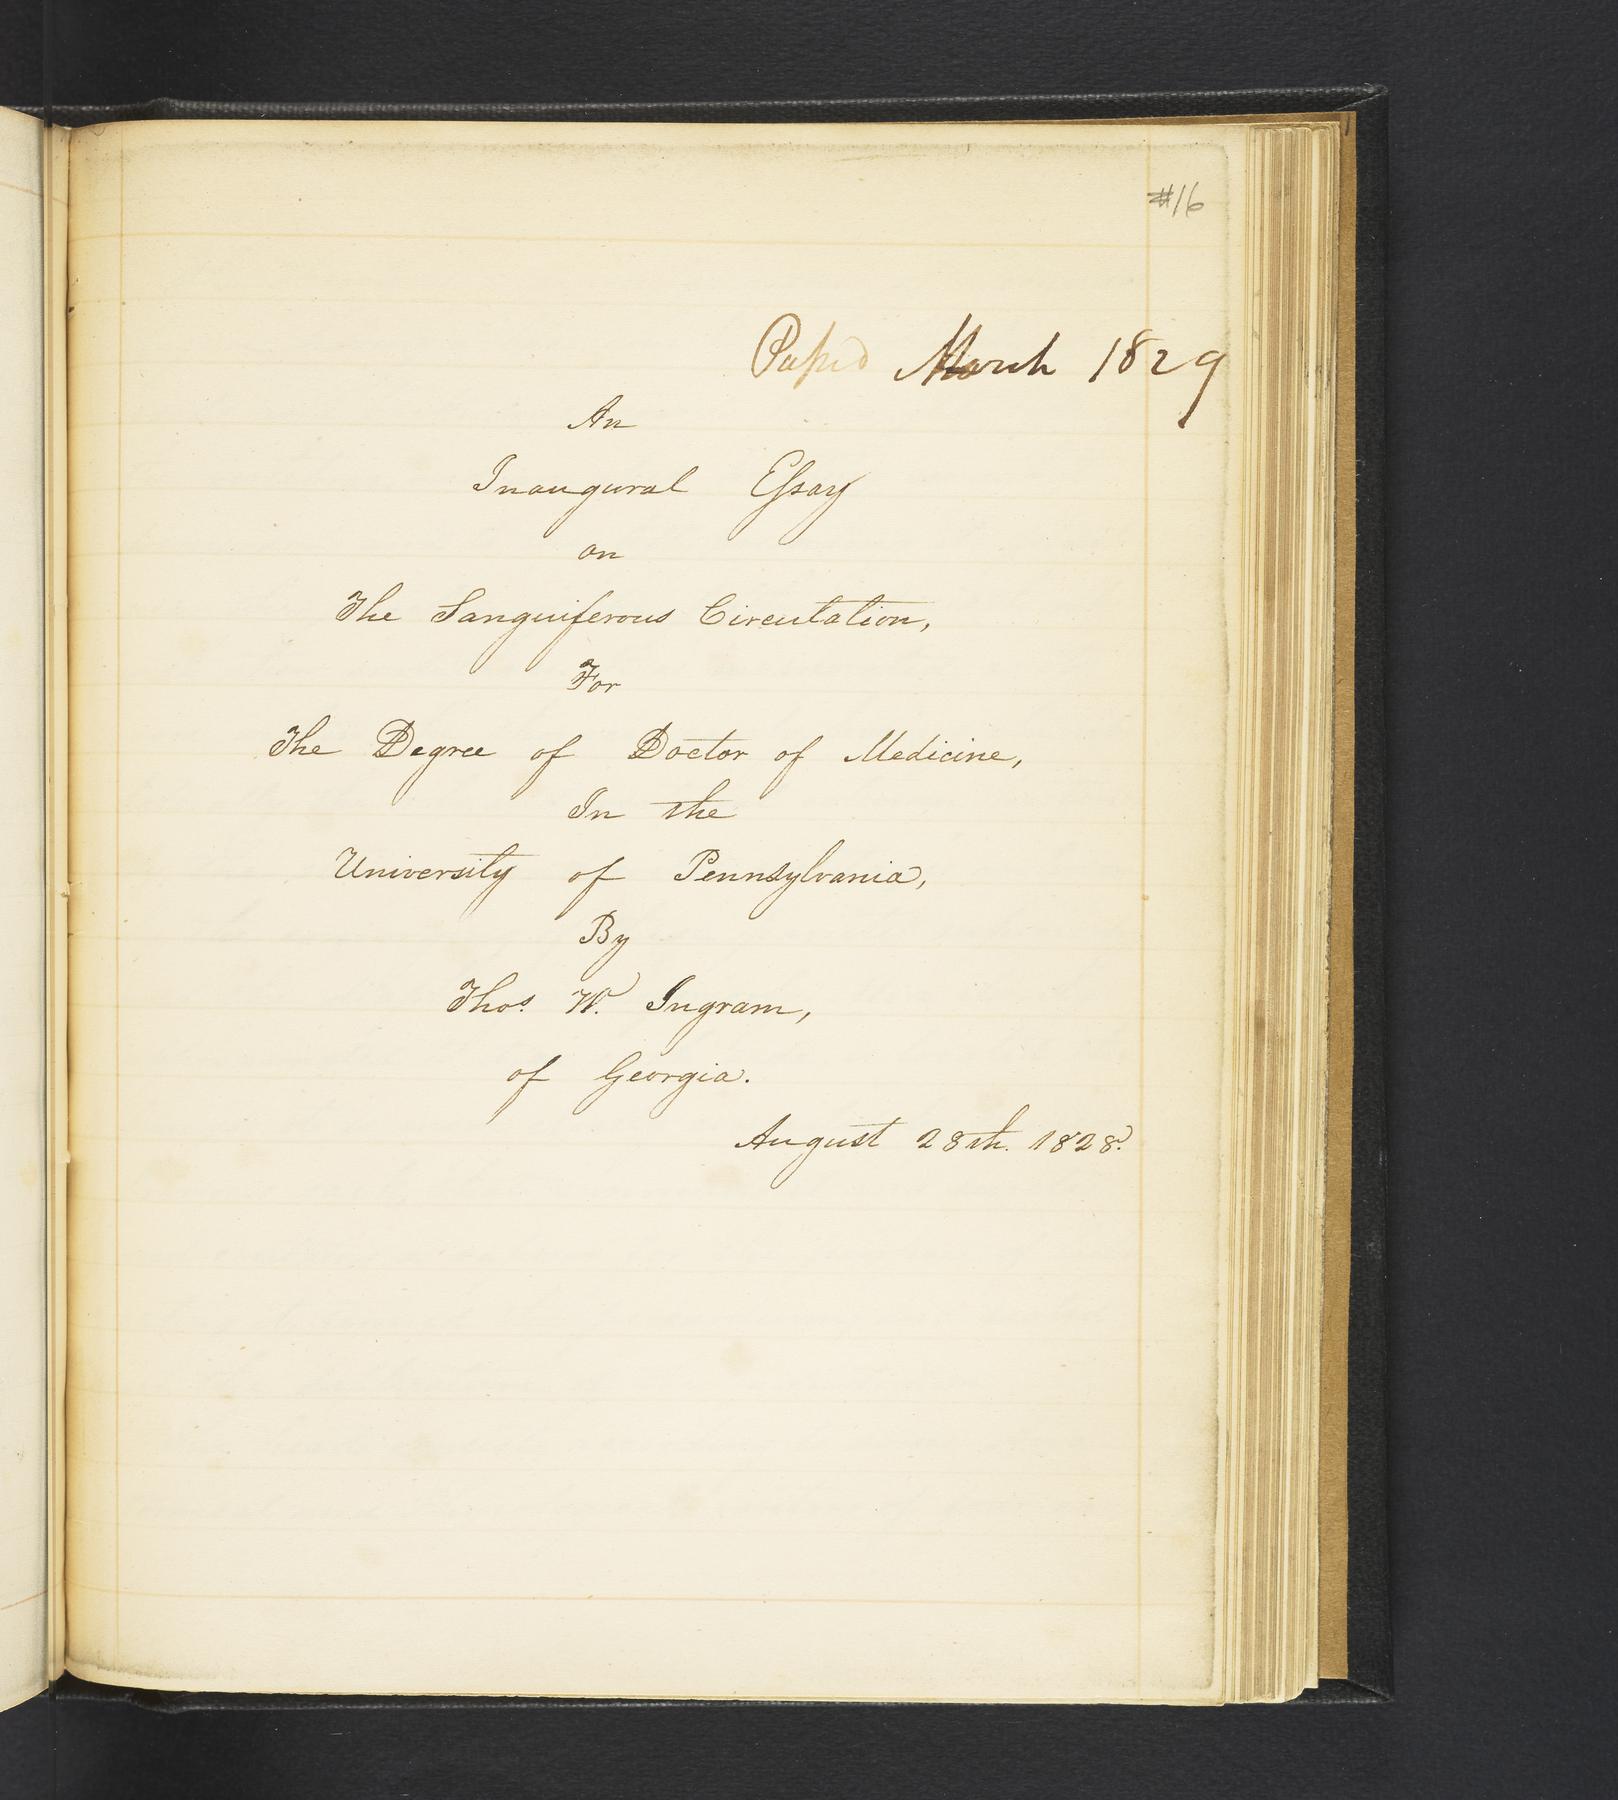 #16
Passed March 1829
An
Inaugural Essay
on
The Sanguiferous Circulation,
For
The Degree of Doctor of Medicine,
In the
University of Pennsylvania,
By
Thos. W. Ingram,
of Georgia.
August 28th. 1828.